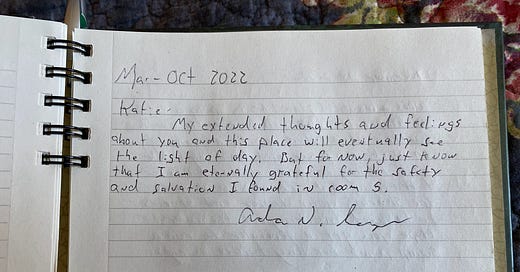 Mar - Oct 2022
Katie -
My extended thoughts and feelings
about you and this place will eventually see
the light of day. But for now, just know
that I am eternally grateful for the safety
and salvation I found in room 5.